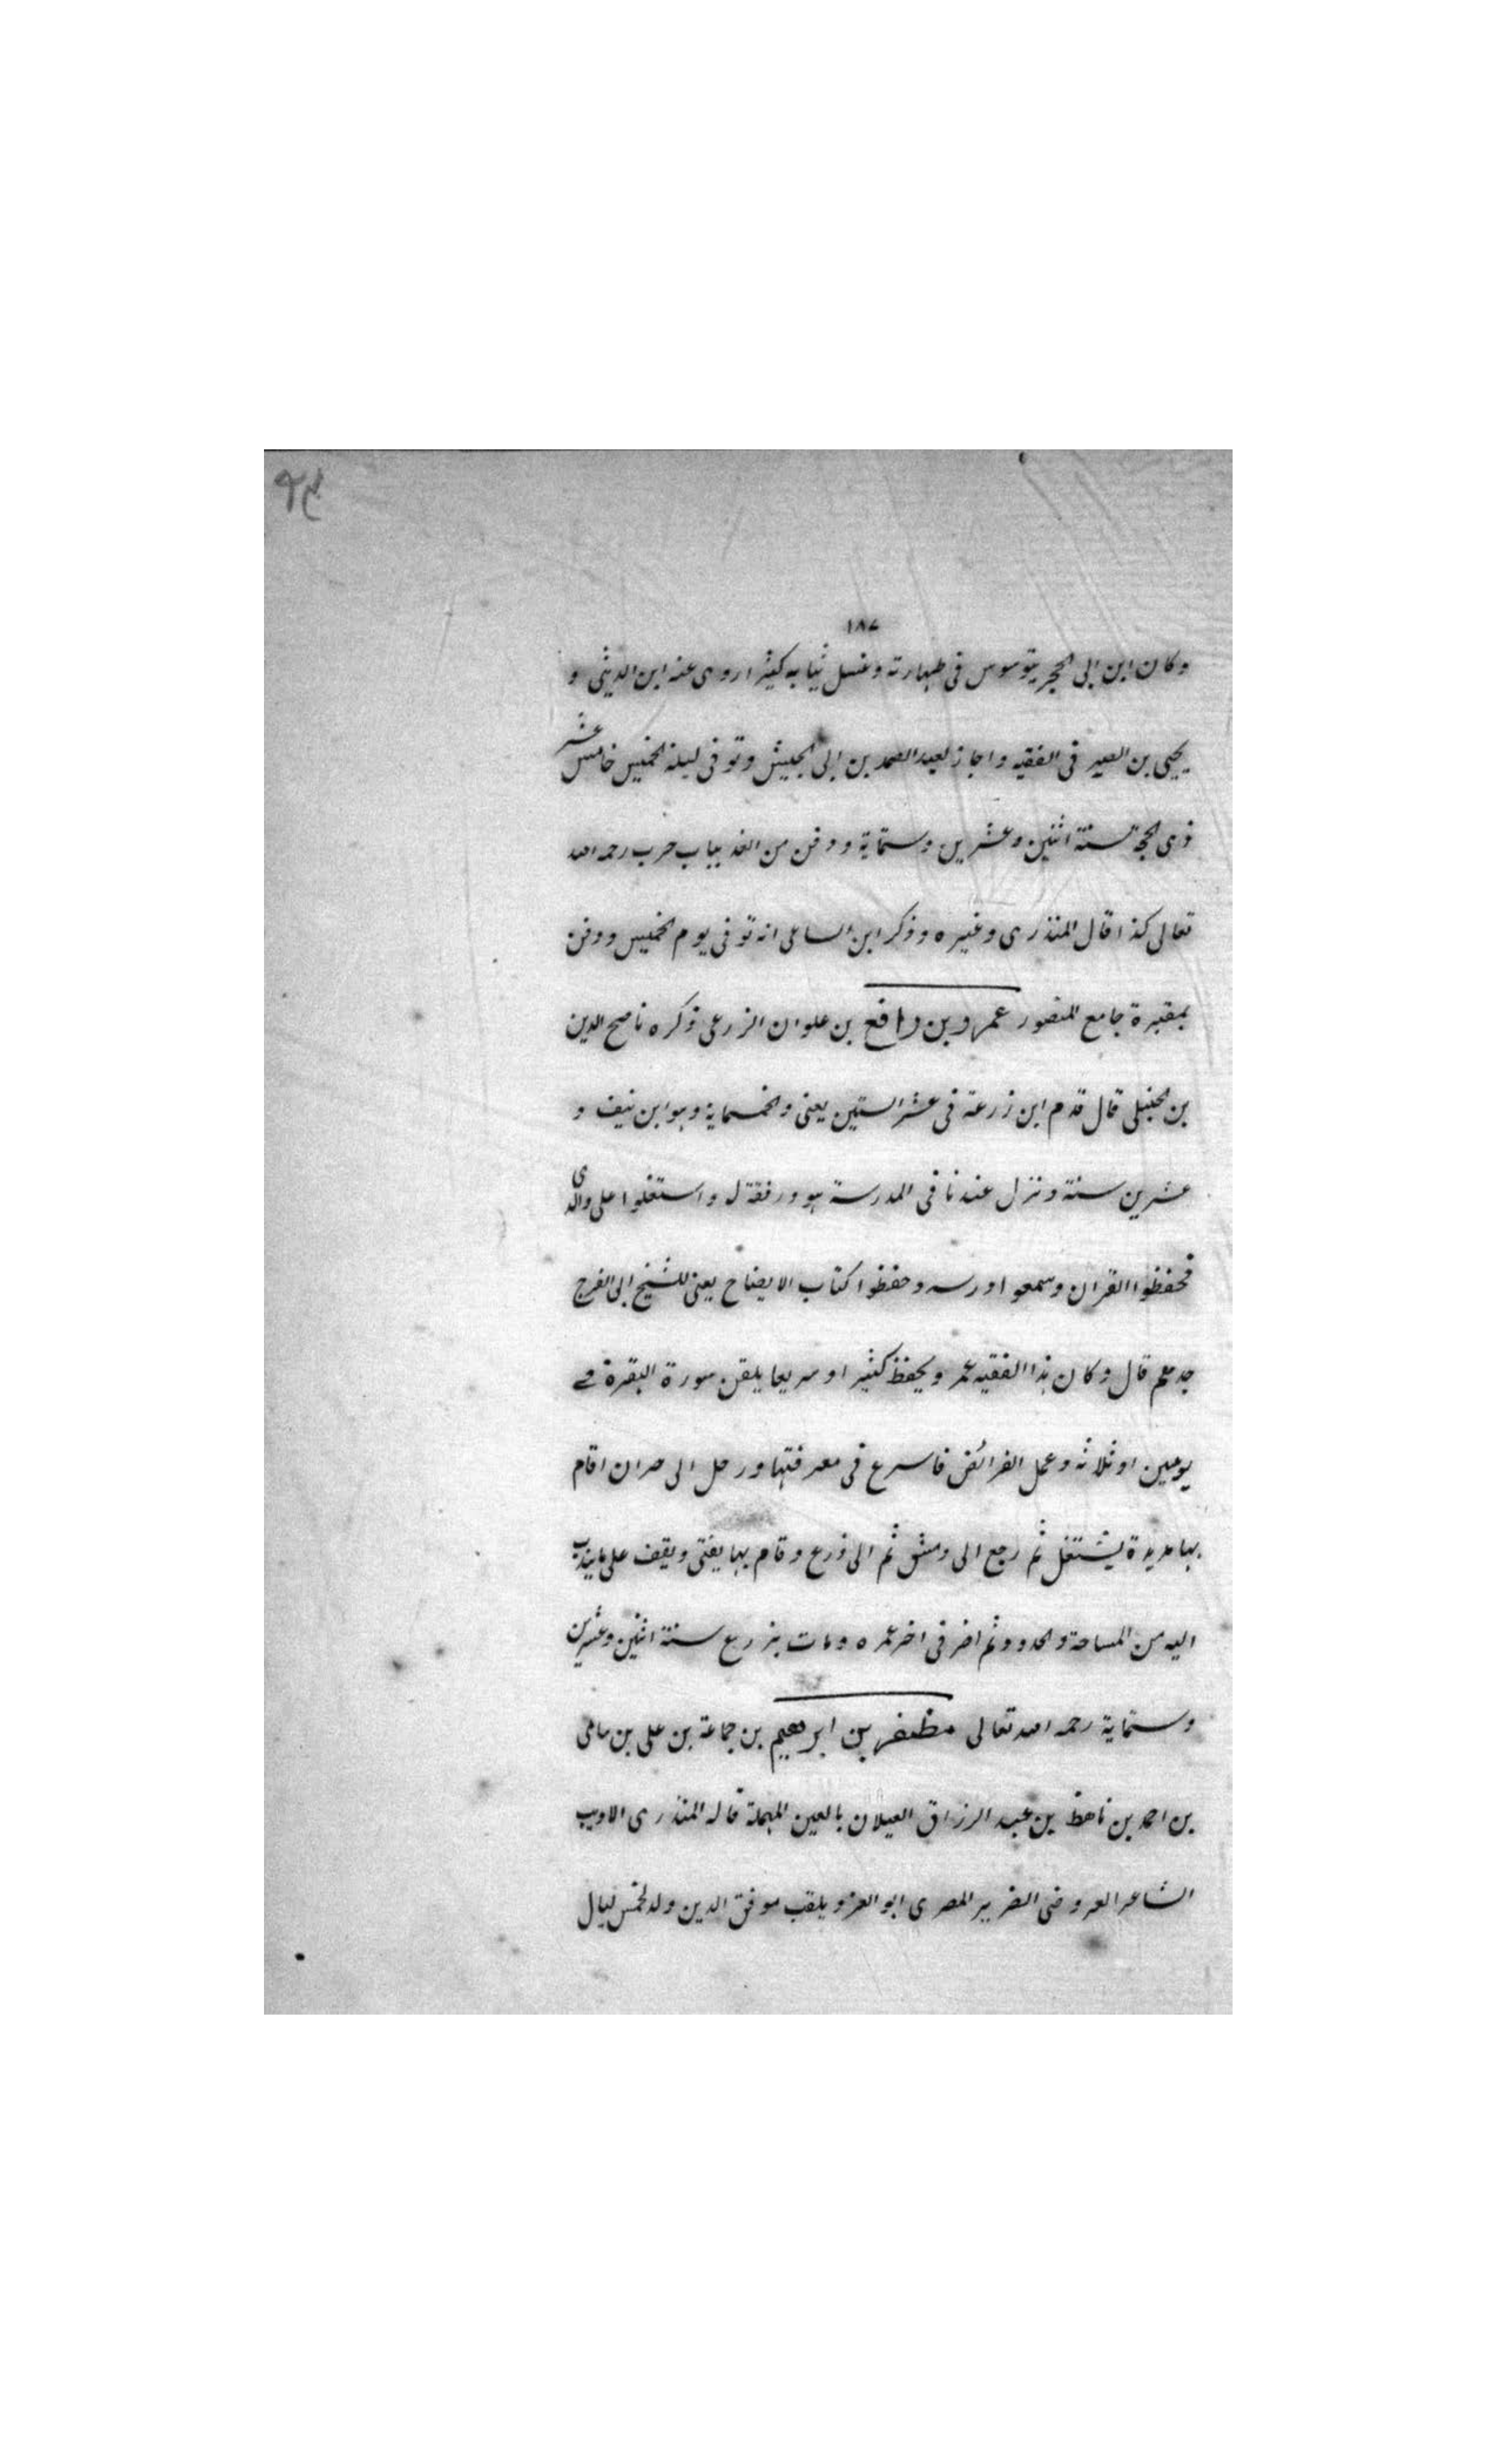 ١٨٧
وكان ابن ابى الحجر يتوسوس فى طهارته وغسل ثيابه كثيرا روى عنه ابن الدبيثى و
يحيى بن الصير فى الفقيه واجاز لعبد الصمد بن ابى الجيش وتوفى ليلة الخميس خامس عشر
ذى الحجة سنة اثنين وعشرين وستماية ودفن من الغد بباب حرب رحمه الله
تعالى كذا قال المنذرى وغيره وذكر ابن الساعى انه توفى يوم الخميس ودفن
بمقبرة جامع المنصور عمرو بن رافع بن علوان الزرعى ذكره ناصح الدين
بن الحنبلى قال قدم ابن زرعة فى عشر الستين يعنى والخمسماية وهو ابن نيف و
عشرين سنة ونزل عندنا فى المدرسة هو ورفقة له واستغلوا على والدى
فحفظوا القران وسمعوا درسه وحفظوا كتاب الايضاح يعنى للشيخ ابى الفرج
جدهم قال وكان هذا الفقيه عمر و يحفظ كثيرا وسريعا يلقن سورة البقرة فى
يومين او ثلاثه وعمل الفرائض فاسرع فى معرفتها ورحل الى حران اقام
بها مديدة يشتغل ثم رجع الى دمشق ثم الى زرع وقام بها يفتى ويقف على ما يندب
اليه من المساحة والحدود ثم اضر فى اخر عمره ومات بزرع سنة اثنين وعشرين
وستماية رحمه الله تعالى مظفر بن ابرهيم بن جماعة بن على بن سامى
بن احمد بن ناهظ بن عبد الرزاق العيلان بالعين المهملة قاله المنذرى الاديب
الشاعر العروضى الضرير المصرى ابو العز ويلقب موفق الدين ولد لخمس ليال